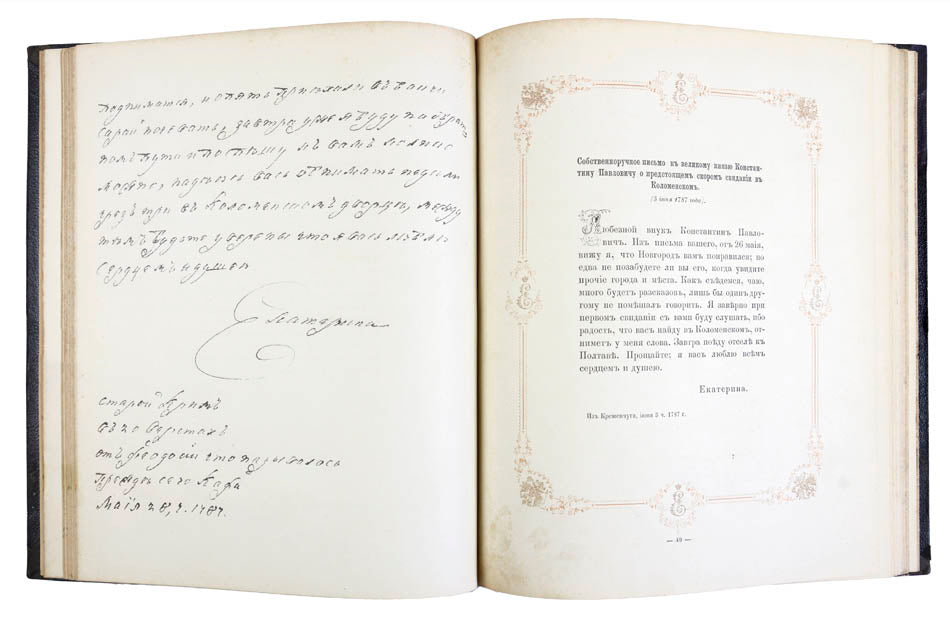 подниматся, и опять приехали в Бакчи
Сарай ночевать, завтра уже я буду на обратном
пути и поспешу к вам колико
можно, надеюсь вась обнимать недели
чрез три в Коломенском дворце, между
тѣм будьте уверены что я вась люблю
сердцем и душею
Екатерина
старой Крим
в 20 верстах
от Феодосии что называлось
прежде сего Кафа
Маïя 28, ч. 1787.
Собственноручное письмо къ великому князю Констан-
тину Павловичу о предстоящемъ скоромъ свиданіи въ
Коломенскомъ.
(5 іюня 1787 года).
Любезной внукъ Константинъ Павло-
вичъ. Изъ письма вашего, отъ 26 маія,
вижу я, что Новгородъ вамъ понравился; но
едва не позабудете ли вы его, когда увидите
прочіе города и мѣста. Какъ съѣдемся, чаю,
много будетъ разсказовъ, лишь бы одинъ дру-
гому не помѣшалъ говорить. Я заверно при
первомъ свиданіи съ вами буду слушать, ибо
радость, что васъ найду въ Коломенскомъ, от-
ниметъ у меня слова. Завтра поѣду отселѣ къ
Полтавѣ. Прощайте; я васъ люблю всѣмъ
сердцемъ и душею.
Екатерина.
Изъ Кременчуга, іюня 5 ч. 1787 г.
7
— 49 —